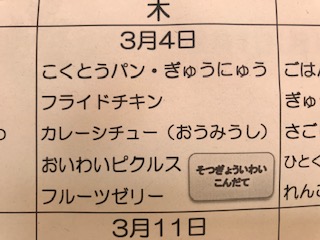 木
3月4日
こくとうパン・ぎゅうにゅう
フライドチキン
カレーシチュー（おうみうし）
おいわいピクルス
フルーツゼリー
そつぎょういわい
こんだて
ごはん
ぎゅ
さご
ひとく
れんこ
わ
3月11日